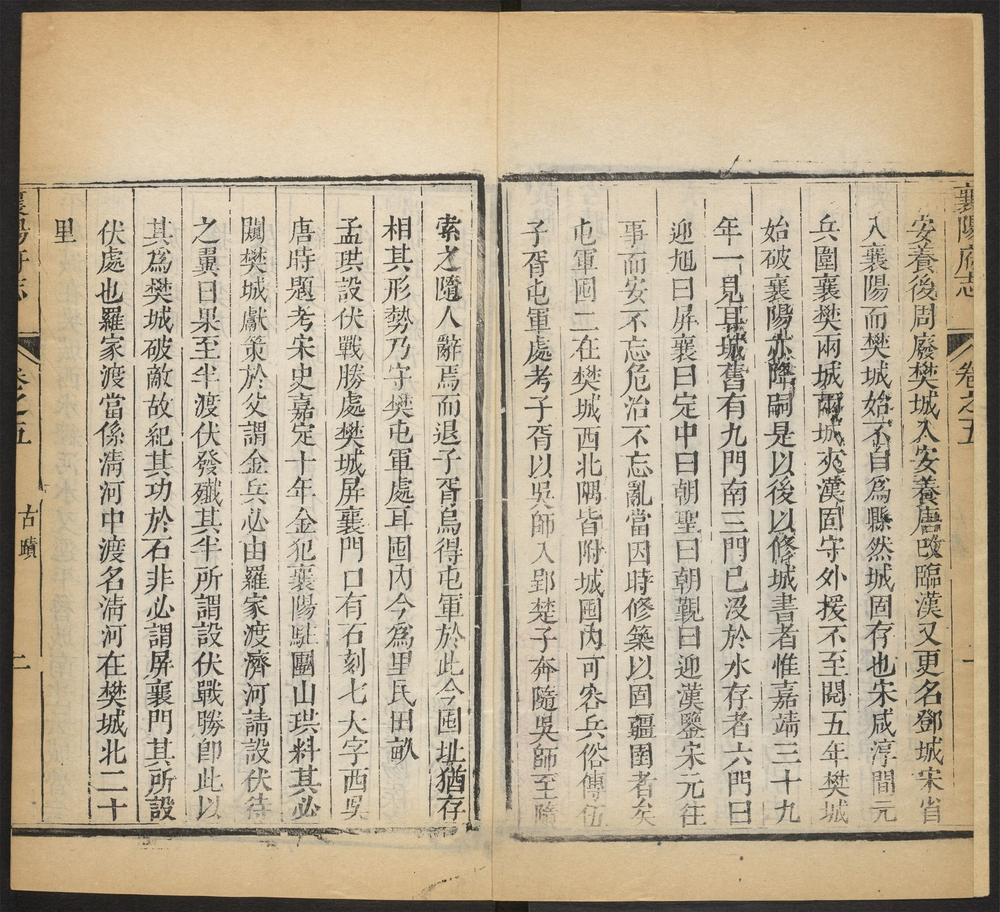 襄陽府志
卷之五
安養後周廢樊城入安養唐改臨漢又更名鄧城宋省
入襄陽而樊城始不自爲縣然城固存也宋咸淳間元
兵圍襄樊兩城兩城夾漢固守外援不至閱五年樊城
始破襄陽亦降嗣是以後以修城書者惟嘉靖三十九
年一見其城舊有九門南三門已沒於水存者六門曰
迎旭曰屏襄曰定中曰朝聖曰朝覲曰迎漢鑒宋元往
事而安不忘危治不忘亂當因時修築以固疆圉者矣
屯軍囤二在樊城西北隅皆附城囤內可容兵俗傳伍
子胥屯軍處考子胥以吳師入郢楚子奔隨吳師至隨
索之隨人辭焉而退子胥烏得屯軍於此今囤址猶存
相其形勢乃守樊屯軍處耳囤內今爲里民田畝
孟珙設伏戰勝處樊城屏襄門口有石刻七大字西吳
唐時題考宋史嘉定十年金犯襄陽駐團山珙料其必
闖樊城獻策於父謂金兵必由羅家渡濟河請設伏待
之翼日果至半渡伏發殲其半所謂設伏戰勝卽此以
其爲樊城破敵故紀其功於石非必謂屏襄門其所設
伏處也羅家渡當係淸河中渡名淸河在樊城北二十
里
襄陽府志
卷之五
古蹟
二